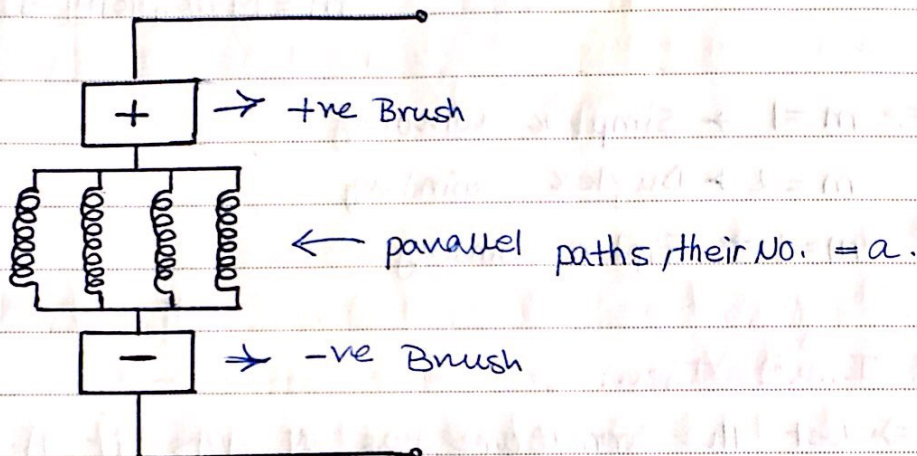 + → +ve Brush
← parallel paths, their No. = a.
− → -ve Brush